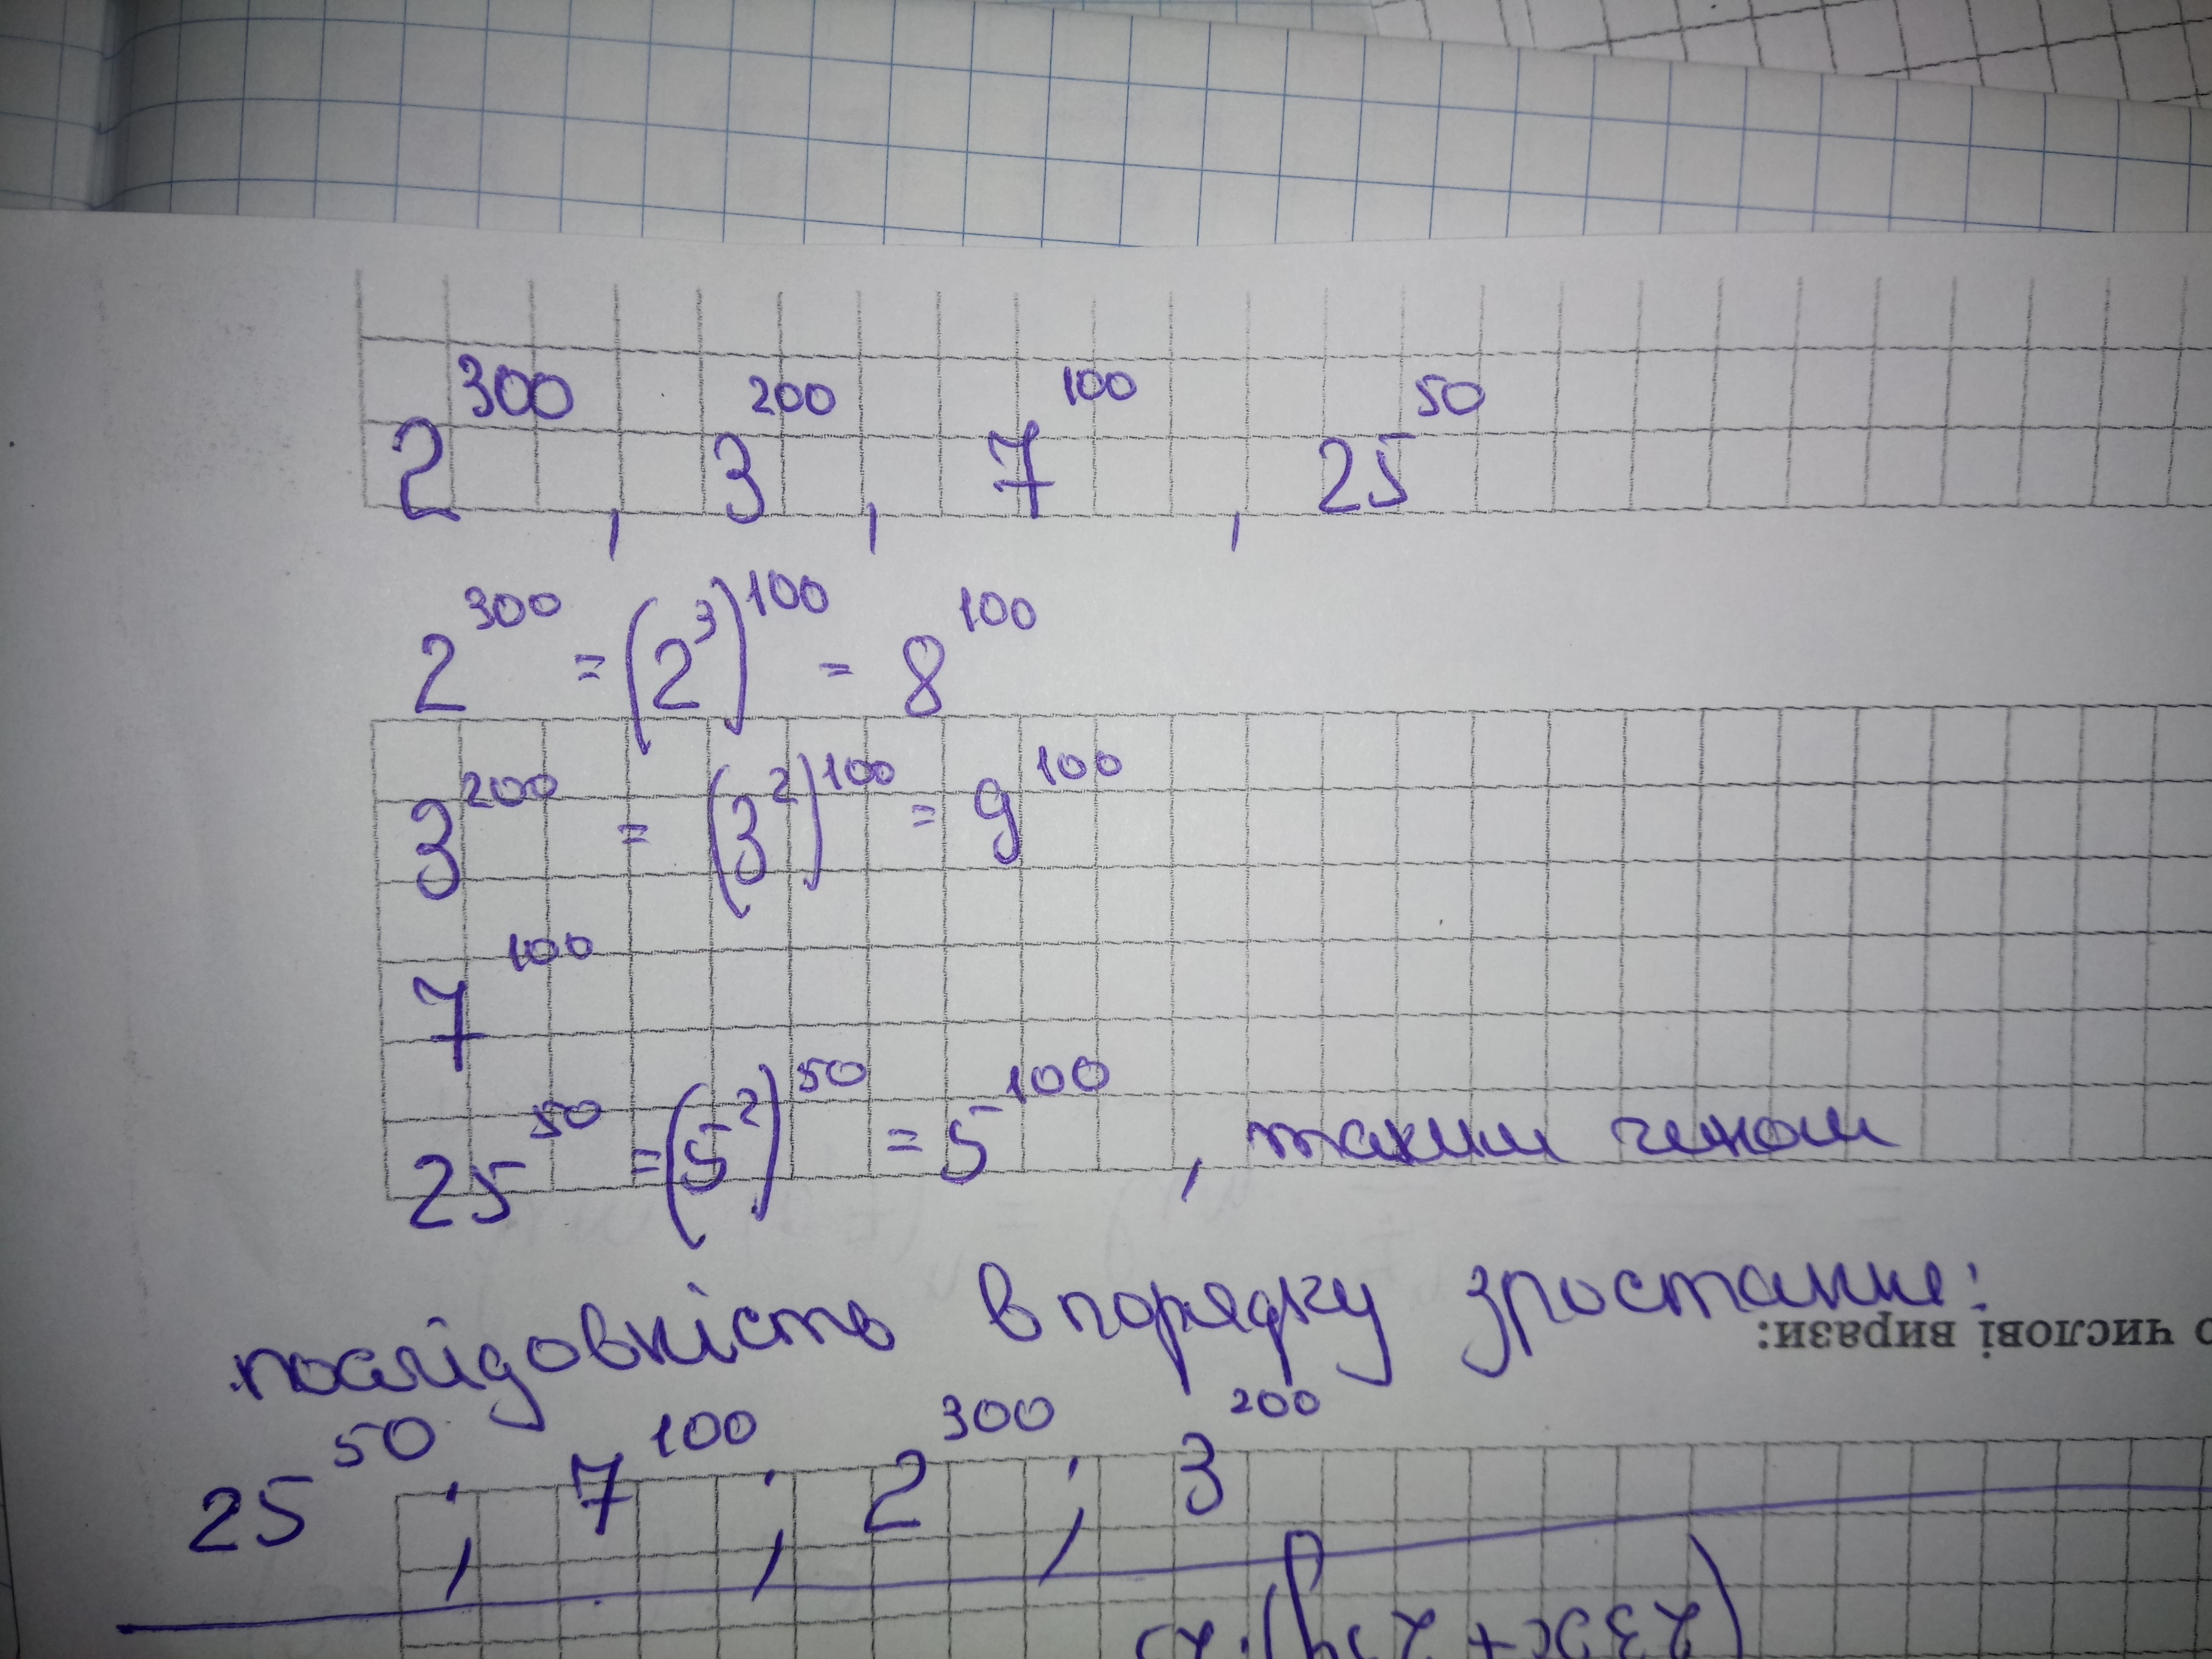 2^300, 3^200, 7^100, 25^50
2^300 = (2^3)^100 = 8^100
3^200 = (3^2)^100 = 9^100
7^100
25^50 = (5^2)^50 = 5^100, таким чином
послідовність в порядку зростання:
числові вирази:
25^50; 7^100; 2^300; 3^200